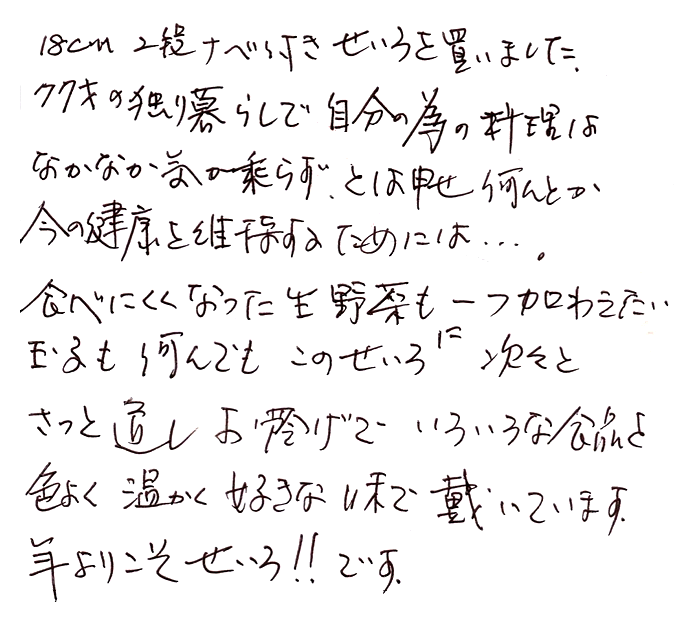 18cm 2段ナベ付きせいろを買いました。
77才の独り暮らしで自分の為の料理は
なかなか気が乗らず、とは申せ何んとか
今の健康を維持するためには…。
食べにくくなった生野菜も一つ加わえたい
も何んでもこのせいろに次々と
さっと通しお蔭げでいろいろな食品を
色よく温かく好きな味で戴いています。
年よりこそせいろ!!です。